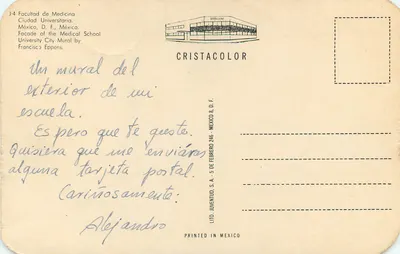 34 Facultad de Medicina
Ciudad Universitaria
México, D. F., México.
Facade of the Medical School
University City Mural by
Francisco Eppens.
CRISTACOLOR
Un mural del
exterior de mi
escuela.
Espero que te guste.
Quisiera que me enviáras
alguna tarjeta postal.
Cariñosamente:
Alejandro
LITO. JUVENTUD, S. A. - 5 DE FEBRERO 246 - MEXICO 8, D. F.
PRINTED IN MEXICO